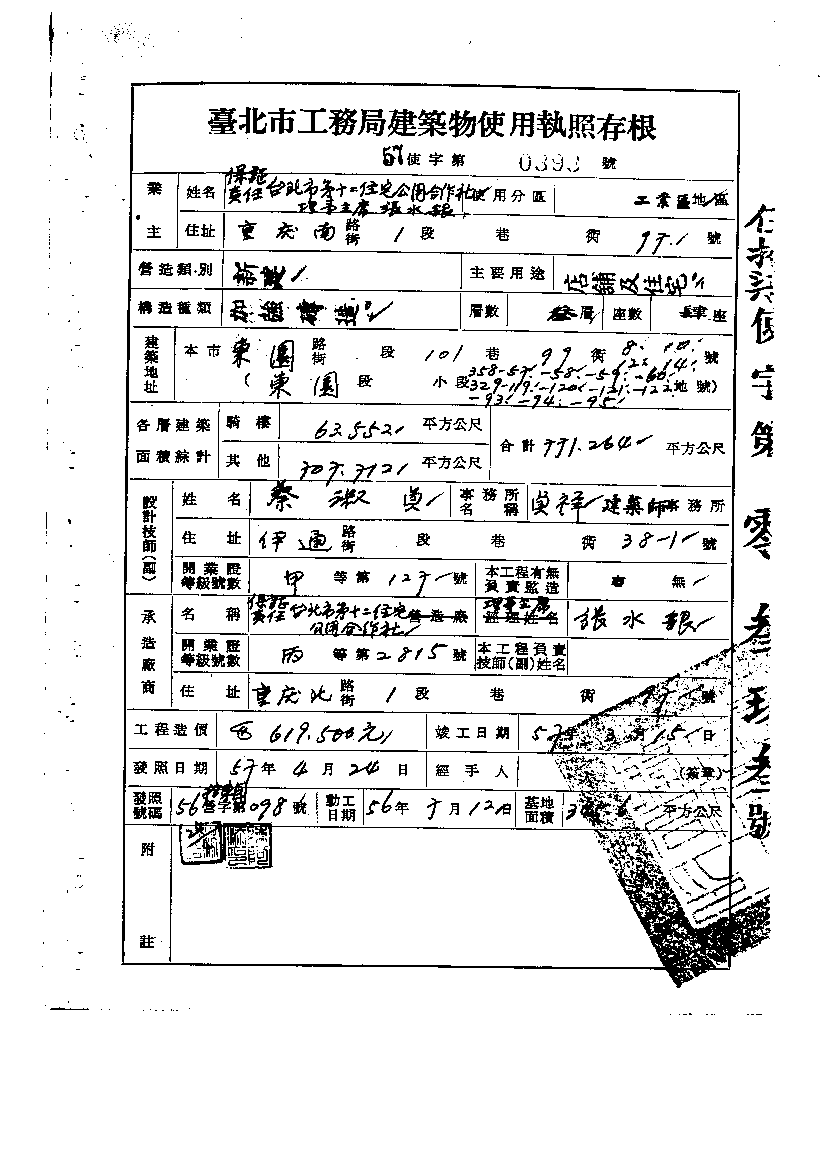 臺北市工務局建築物使用執照存根
57使字第 0393 號
業主 姓名 保証責任台北市第十二住宅公用合作社 理事主席 張水銀 使用分區 工業區地區
住址 重慶南路街 1段 巷 街 號
營造類別 新建 主要用途 店鋪及住宅
構造種類 加強磚造 層數 叁層 座數 肆座
建築地址 本市 東園路街 段 101巷 99街 8. 10. 12. 14. 號
(東園段 小段 358-57.-58.-59.-60. 329-119.-120.-121.-122 -93.-94.-95. 地號)
各層建築面積綜計 騎樓 63.552 平方公尺 合計 771.264 平方公尺
其他 707.712 平方公尺
設計技師(副) 姓名 蔡淑貞 事務所名稱 貞祥建築師事務所
住址 伊通路街 段 巷 街 38-1 號
開業證等級號數 甲等第 號 本工程有無負責監造 有 無
承造廠商 名稱 保証責任台北市第十二住宅公用合作社 營造廠 理事主席 經理姓名 張水銀
開業證等級號數 丙等第2815號 本工程負責技師(副)姓名
住址 重慶北路街 1段 巷 街 號
工程造價 619.500元 竣工日期 57年3月15日
發照日期 57年4月24日 經手人 (簽章)
發照號碼 56營字第098號 動工日期 56年 月12日 基地面積 平方公尺
附註
使字第零叁玖叁號